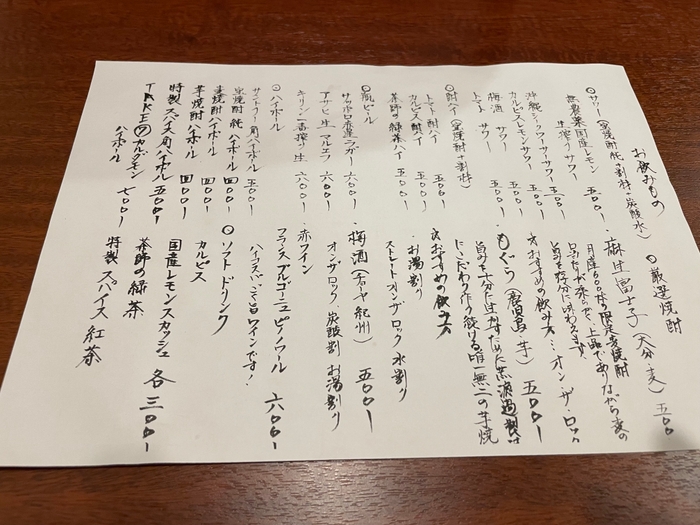 お飲みもの
○サワー(宝焼酎純+割材・炭酸水)
無農薬国産レモン
生搾りサワー 五〇〇-
沖縄シークワーサーサワー 五〇〇-
カルピスレモンサワー 五〇〇-
梅酒サワー 五〇〇-
トマトサワー 五〇〇-
○酎ハイ(宝焼酎+割材)
トマト酎ハイ 五〇〇-
カルピス酎ハイ 五〇〇-
茶師の緑茶ハイ 五〇〇-
○瓶ビール
サッポロ赤星ラガー 六〇〇-
アサヒ生 マルエフ 六〇〇-
キリン一番搾り生 六〇〇-
○ハイボール
サントリー角ハイボール 五〇〇-
宝焼酎純ハイボール 四〇〇-
麦焼酎ハイボール 四〇〇-
芋焼酎ハイボール 四〇〇-
特製スパイス角ハイボール 五〇〇-
TAKEのカルダモン
ハイボール 七〇〇-
○厳選焼酎
・麻生富士子(大分・麦) 五〇〇
月産600本の限定麦焼酎
口あたりが柔らかで、上品でありながら麦の
旨みを存分に味わえます。
☆おすすめの飲み方…オン・ザ・ロック
・もぐら(鹿児島 芋) 五〇〇-
旨みを十分に生かすため無濾過製法
にこだわり作り続ける唯一無二の芋焼
☆おすすめの飲み方
・お湯割り
ストレート オンザロック 水割り
・梅酒(チョーヤ紀州) 五〇〇-
オンザロック、炭酸割 お湯割り
赤ワイン
フランス ブルゴーニュ ピノノワール 六〇〇-
ハイスパイスで旨口ワインです!
○ソフトドリンク
カルピス
国産レモンスカッシュ 各三〇〇-
茶師の緑茶
特製スパイス紅茶